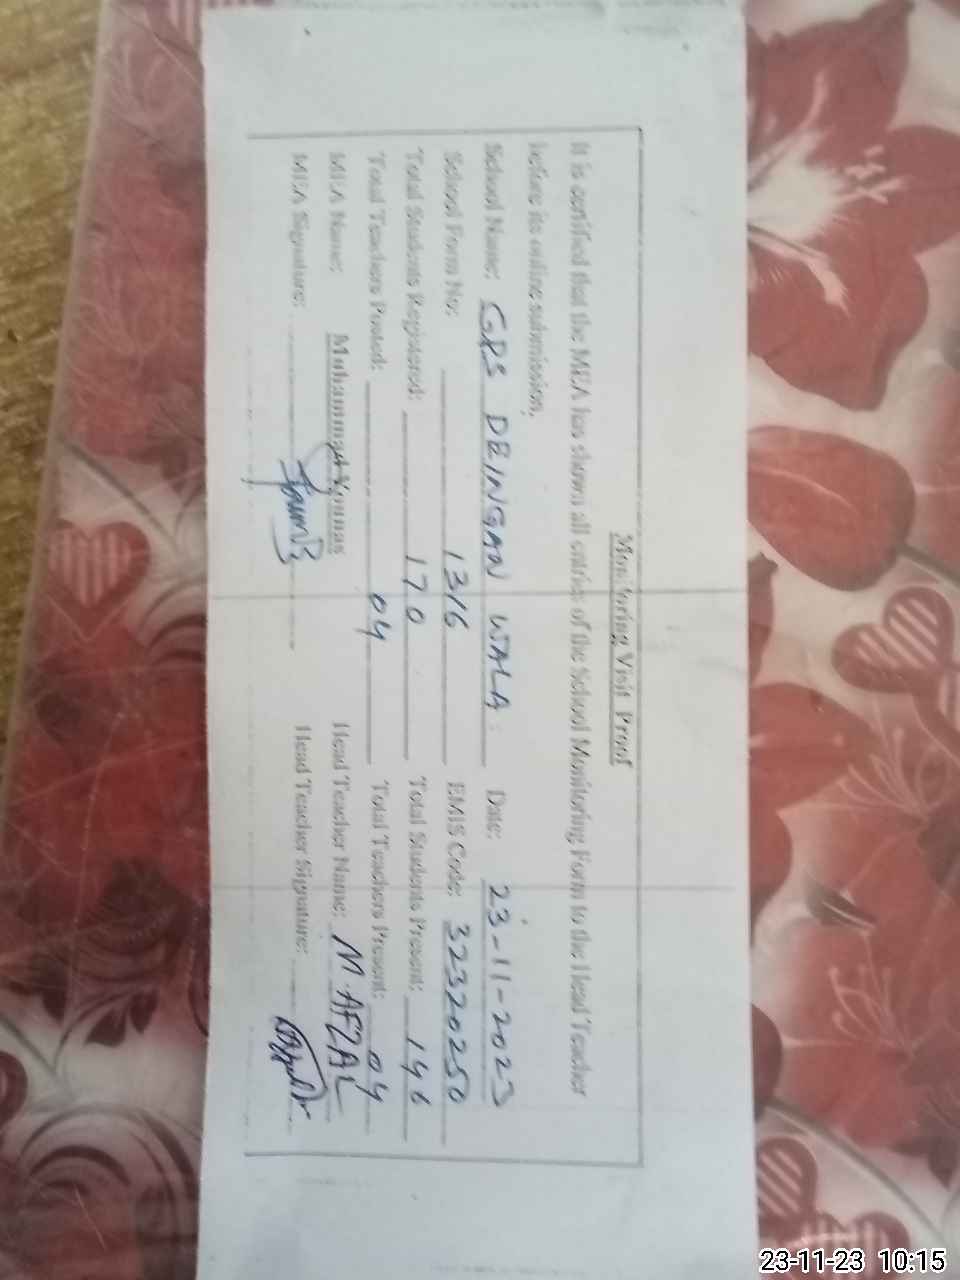 Monitoring Visit Proof
It is certified that the MEA has shown all entries of the School Monitoring Form to the Head Teacher
before its online submission.
School Name: GPS DEINGAN WALA Date: 23-11-2023
School Form No: 1316 EMIS Code: 32320250
Total Students Registered: 170 Total Students Present: 146
Total Teachers Posted: 04 Total Teachers Present: 04
MEA Name: Muhammad Younas Head Teacher Name: M. AFZAL
MEA Signature: Head Teacher Signature:
23-11-23 10:15